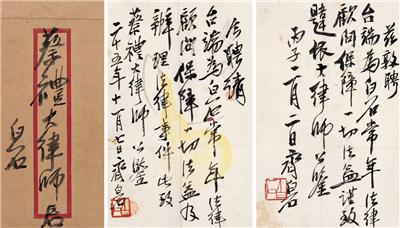 蔡禮大律師
白石
兹聘請
台端為白石常年法律
顧問保障一切法益及
辦理法律事件此致
蔡禮大律師公鑒
二十五年十一月七日齊白石
兹敦聘
台端為白石常年法律
顧問保障一切法益謹致
振大律師公鑒
丙子二月二日齊白石